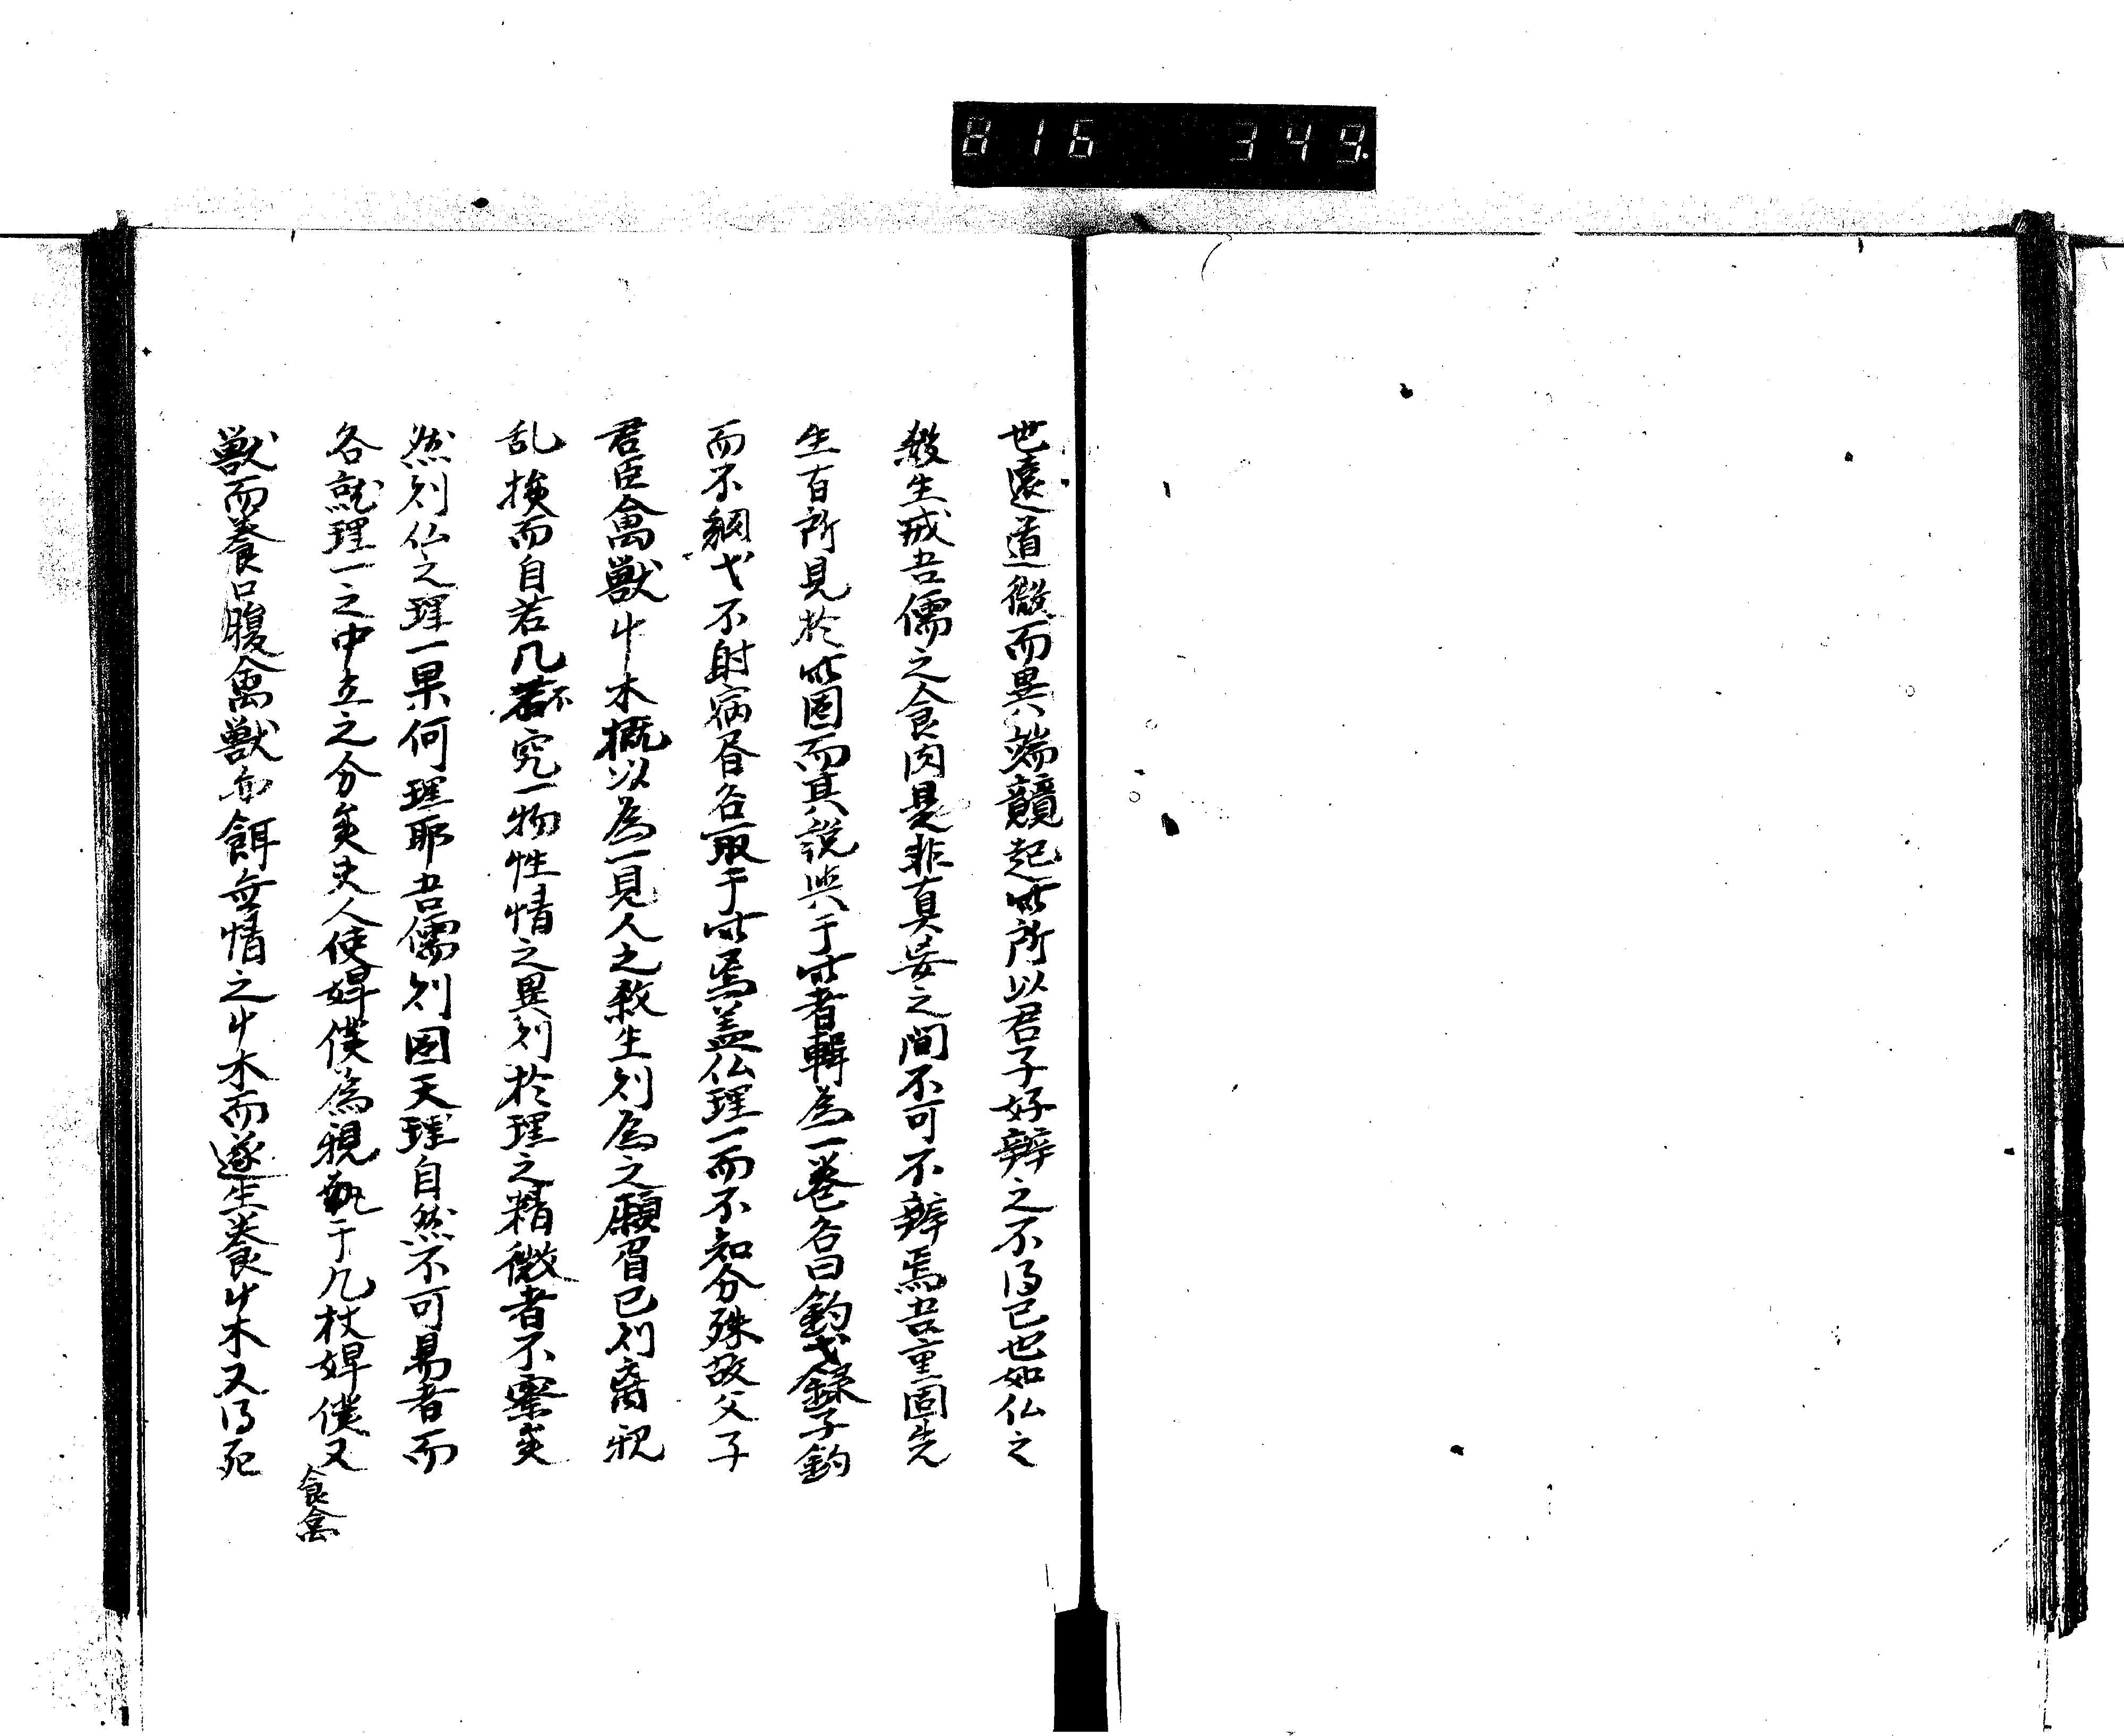 816 349
世遠道微而異端競起此所以君子好辨之不得已也如仏之
殺生戒吾儒之食肉是非真妄之間不可不辨焉吾重固先
生有所見於此因而其説與于此者輯為一巻名曰釣弋録子釣
而不綱弋不射宿吾名取于此焉盖仏理一而不知分殊故父子
君臣禽獣屮木概以為一見人之殺生則為之顰眉已則离親
乱換而自若凡不究一物性情之異則於理之精微者不察矣
然則仏之理一果何理耶吾儒則因天理自然不可易者而
各就理一之中立之分矣夫人使婢僕為親執于几杖婢僕又食禽
獣而養口腹禽獣亦餌無情之屮木而遂生養屮木又得死